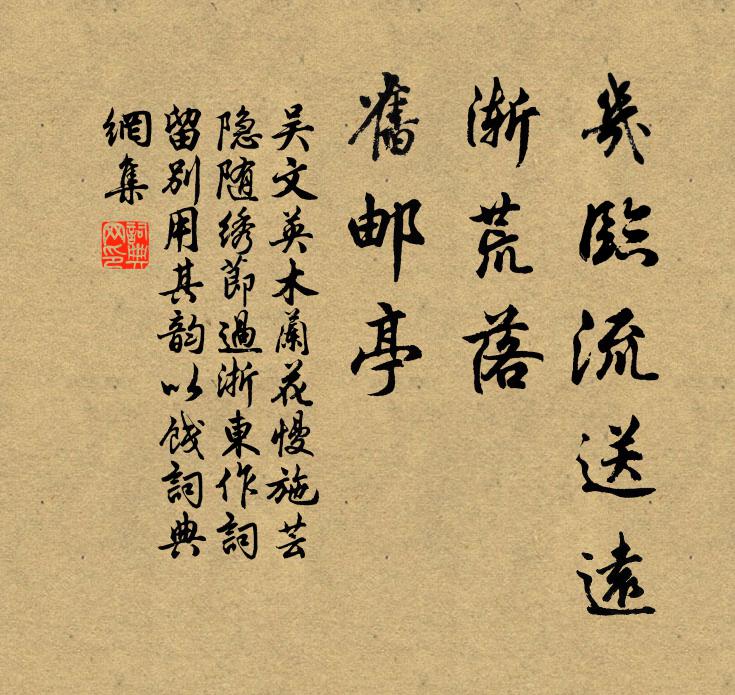 幾臨流送遠
漸荒落
舊邮亭
吴文英木蘭花慢施芸
隐随绣節過浙東作詞
留别用其韵以餞詞典
網集
詞典
网印